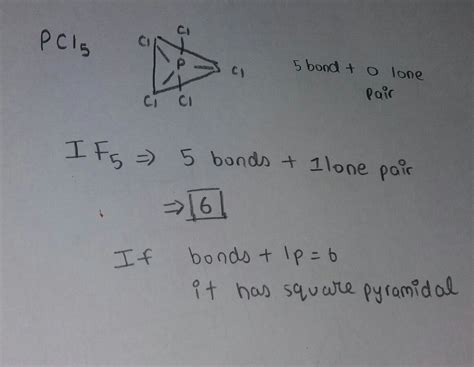 PCl5
Cl
Cl
P
Cl
Cl
Cl
5 bond + 0 lone
pair
IF5 ⇒ 5 bonds + 1 lone pair
⇒ 6
If bonds + lp = 6
it has square pyramidal